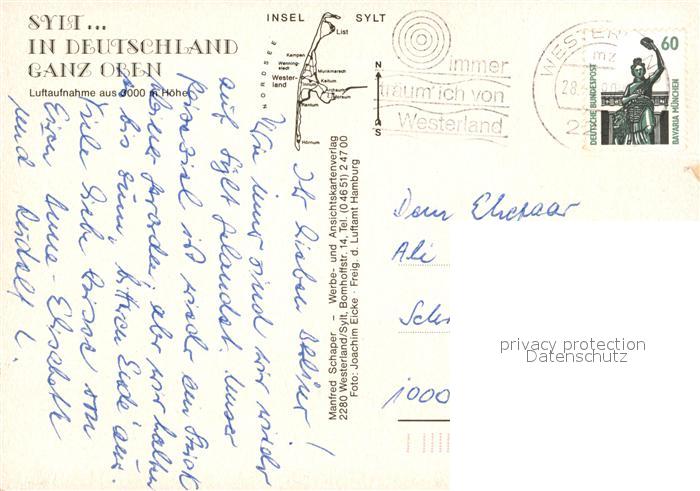 SYLT...
IN DEUTSCHLAND
GANZ OBEN
Luftaufnahme aus 3000 m Höhe
INSEL SYLT
NORDSEE
List
Kampen
Wenning-
stedt
Wester-
land
Munkmarsch
Keitum
Archsum
Morsum
Rantum
Hörnum
N
S
immer
träum' ich von
Westerland
WESTER
mz
28.
22
60
DEUTSCHE BUNDESPOST
BAVARIA MÜNCHEN
Manfred Schaper – Werbe- und Ansichtskartenverlag
2280 Westerland/Sylt, Bomhoffstr. 14, Tel. (0 46 51) 2 47 00
Foto: Joachim Eicke · Freig. d. Luftamt Hamburg
Ihr lieben Berliner!
Wie immer sind wir wieder
auf Sylt gelandet. Unser
ist wieder ein Stück
aber wir halten
es bis zum bitteren Ende aus.
Viele liebe Grüsse von
Euren Anne-Elisabeth
und Rudolf L.
Dem Ehepaar
Ali
Sch
1000
privacy protection
Datenschutz